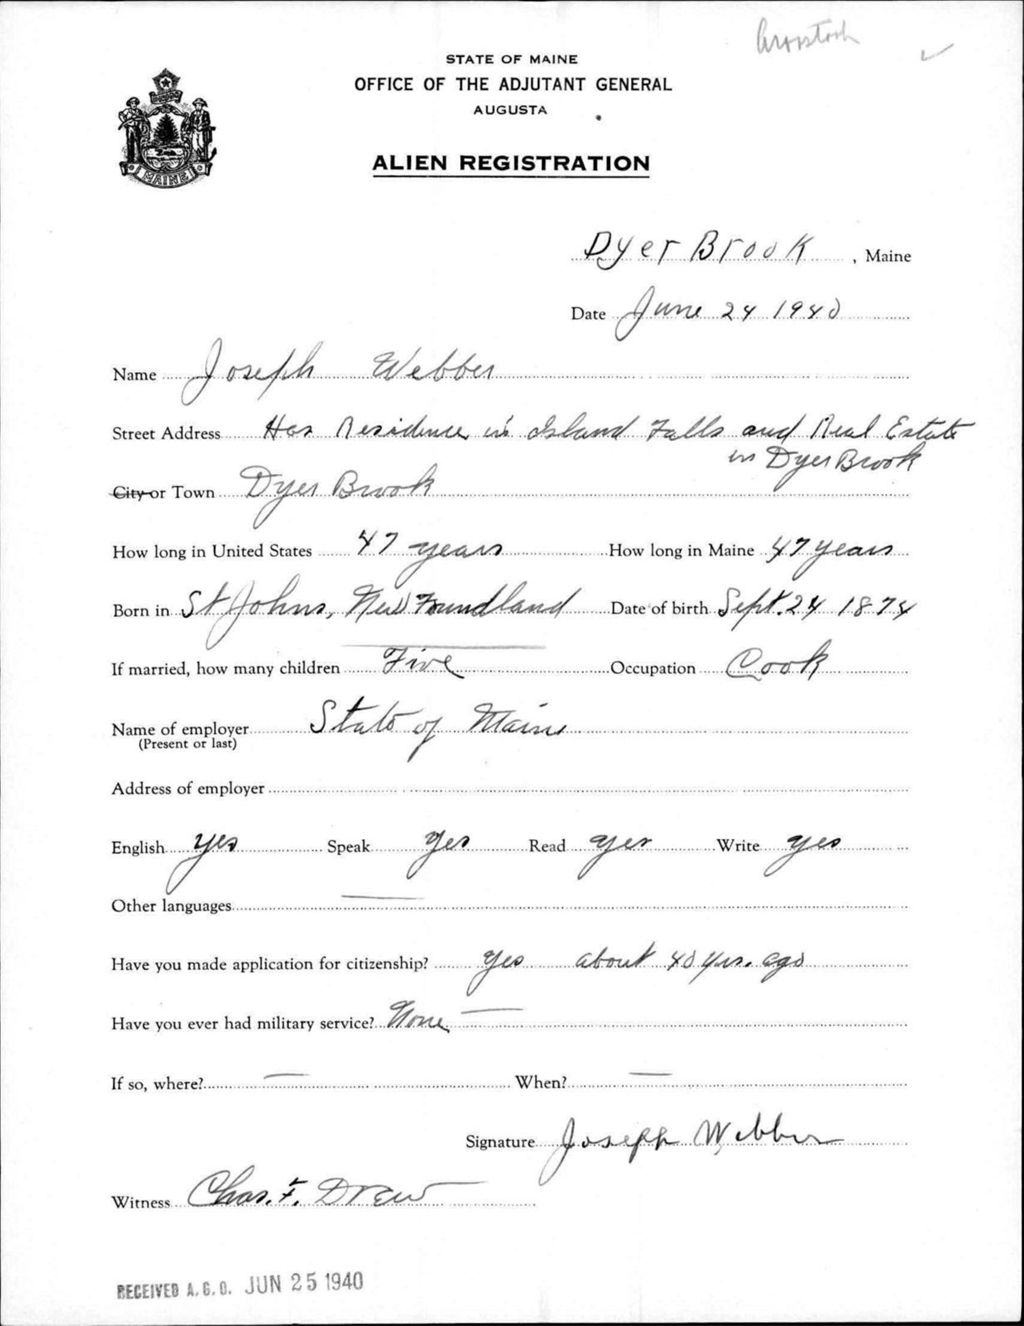 Aroostook
STATE OF MAINE
OFFICE OF THE ADJUTANT GENERAL
AUGUSTA
ALIEN REGISTRATION
MAINE
Dyer Brook, Maine
Date June 24 1940
Name Joseph Webber
Street Address Has Residence in Island Falls and Real Estate
in Dyer Brook
City or Town Dyer Brook
How long in United States 47 years How long in Maine 47 years
Born in St Johns, New Foundland Date of birth Sept. 24 1874
If married, how many children Five Occupation Cook
Name of employer State of Maine
(Present or last)
Address of employer
English yes Speak yes Read yes Write yes
Other languages —
Have you made application for citizenship? yes about 40 yrs. ago
Have you ever had military service? None —
If so, where? — When? —
Signature Joseph Webber
Witness Chas. F. Drew
RECEIVED A.G.O. JUN 25 1940